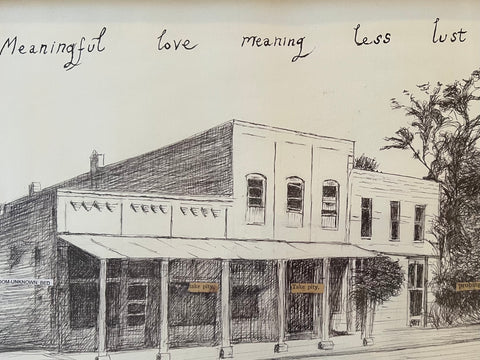 Meaningful love meaning less lust
OM-UNKNOWN_RED
take pity.
Take pity.